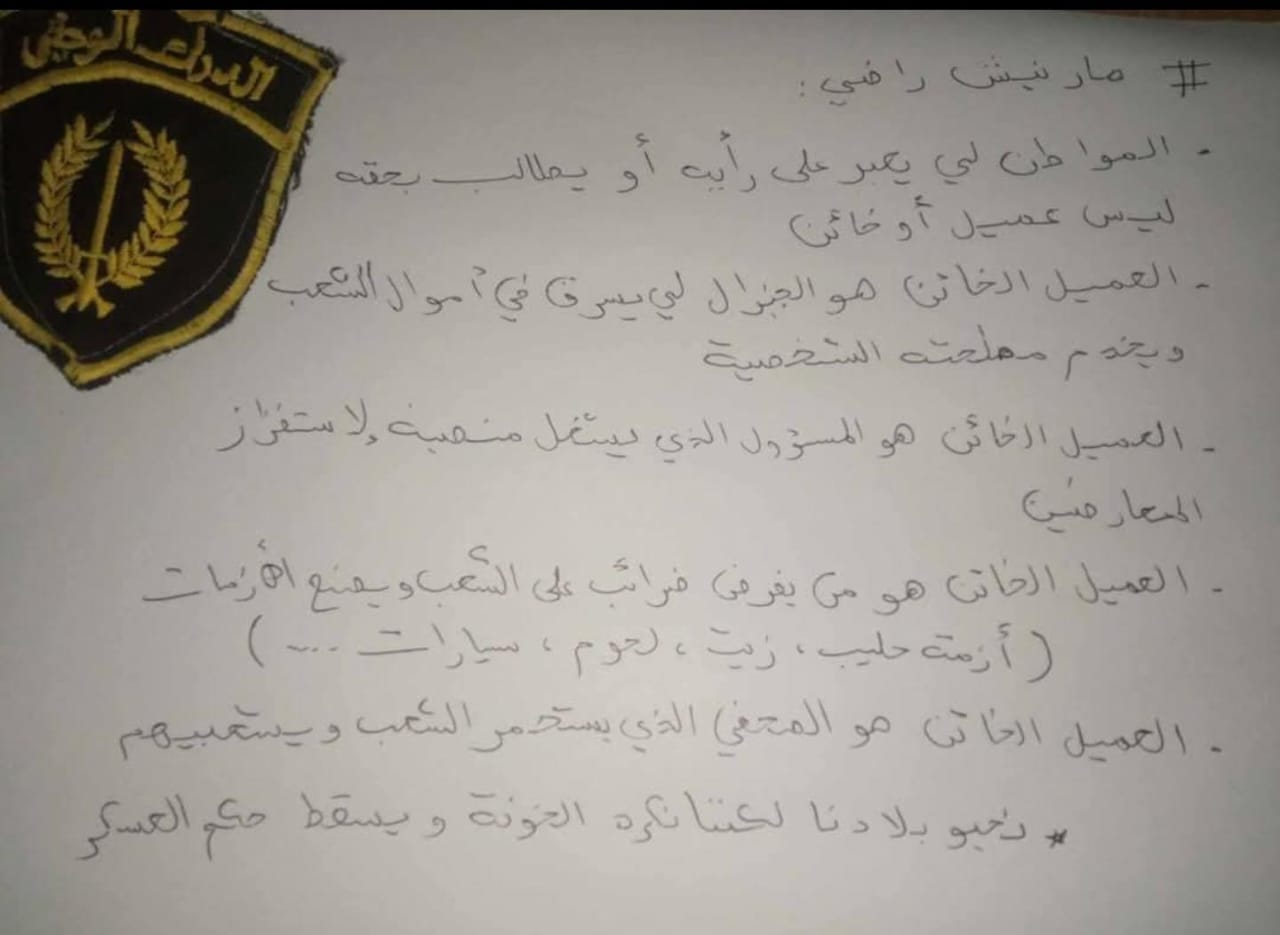 الدرك الوطني
# مارنيش راضي :
- المواطن لي يعبر على رأيه أو يطالب بحقه
ليس عميل أو خائن
- العميل الخائن هو الجنرال لي يسرق في أموال الشعب
ويخدم مصلحته الشخصية
- العميل الخائن هو المسؤول الذي يستغل منصبه لاستفزاز
المعارضين
- العميل الخائن هو من يفرض ضرائب على الشعب ويصنع الأزمات
( أزمة حليب، زيت، لحوم، سيارات .... )
- العميل الخائن هو الصحفي الذي يستحمر الشعب ويستغبيهم
* نحبو بلادنا لكننا نكره الخونة و يسقط حكم العسكر